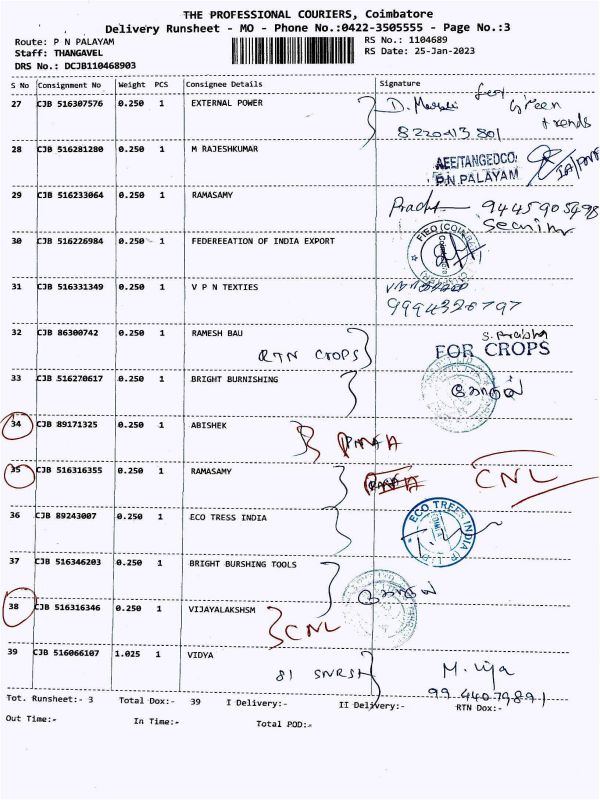 THE PROFESSIONAL COURIERS, Coimbatore
Delivery Runsheet - MO - Phone No.:0422-3505555 - Page No.:3
Route: P N PALAYAM
RS No.: 1104689
Staff: THANGAVEL
RS Date: 25-Jan-2023
DRS No.: DCJB110468903
S No Consignment No Weight PCS Consignee Details Signature
27 CJB 516307576 0.250 1 EXTERNAL POWER
for Green trends
28 CJB 516281280 0.250 1 M RAJESHKUMAR
AEE/TANGEDCO
P.N.PALAYAM
29 CJB 516233064 0.250 1 RAMASAMY
9445905498
30 CJB 516226984 0.250 1 FEDEREEATION OF INDIA EXPORT
FIEO (COIMBA
31 CJB 516331349 0.250 1 V P N TEXTIES
9994326797
32 CJB 86300742 0.250 1 RAMESH BAU
RTN CROPS
S. Prabha
FOR CROPS
33 CJB 516270617 0.250 1 BRIGHT BURNISHING
34 CJB 89171325 0.250 1 ABISHEK
PMNA
35 CJB 516316355 0.250 1 RAMASAMY
CNL
36 CJB 89243007 0.250 1 ECO TRESS INDIA
ECO TREES INDIA (P) LTD
37 CJB 516346203 0.250 1 BRIGHT BURSHING TOOLS
38 CJB 516316346 0.250 1 VIJAYALAKSHSM
CNL
39 CJB 516066107 1.025 1 VIDYA
81 SNRSH
M. Vija
Tot. Runsheet:- 3 Total Dox:- 39 I Delivery:- II Delivery:- RTN Dox:-
Out Time:- In Time:- Total POD:-